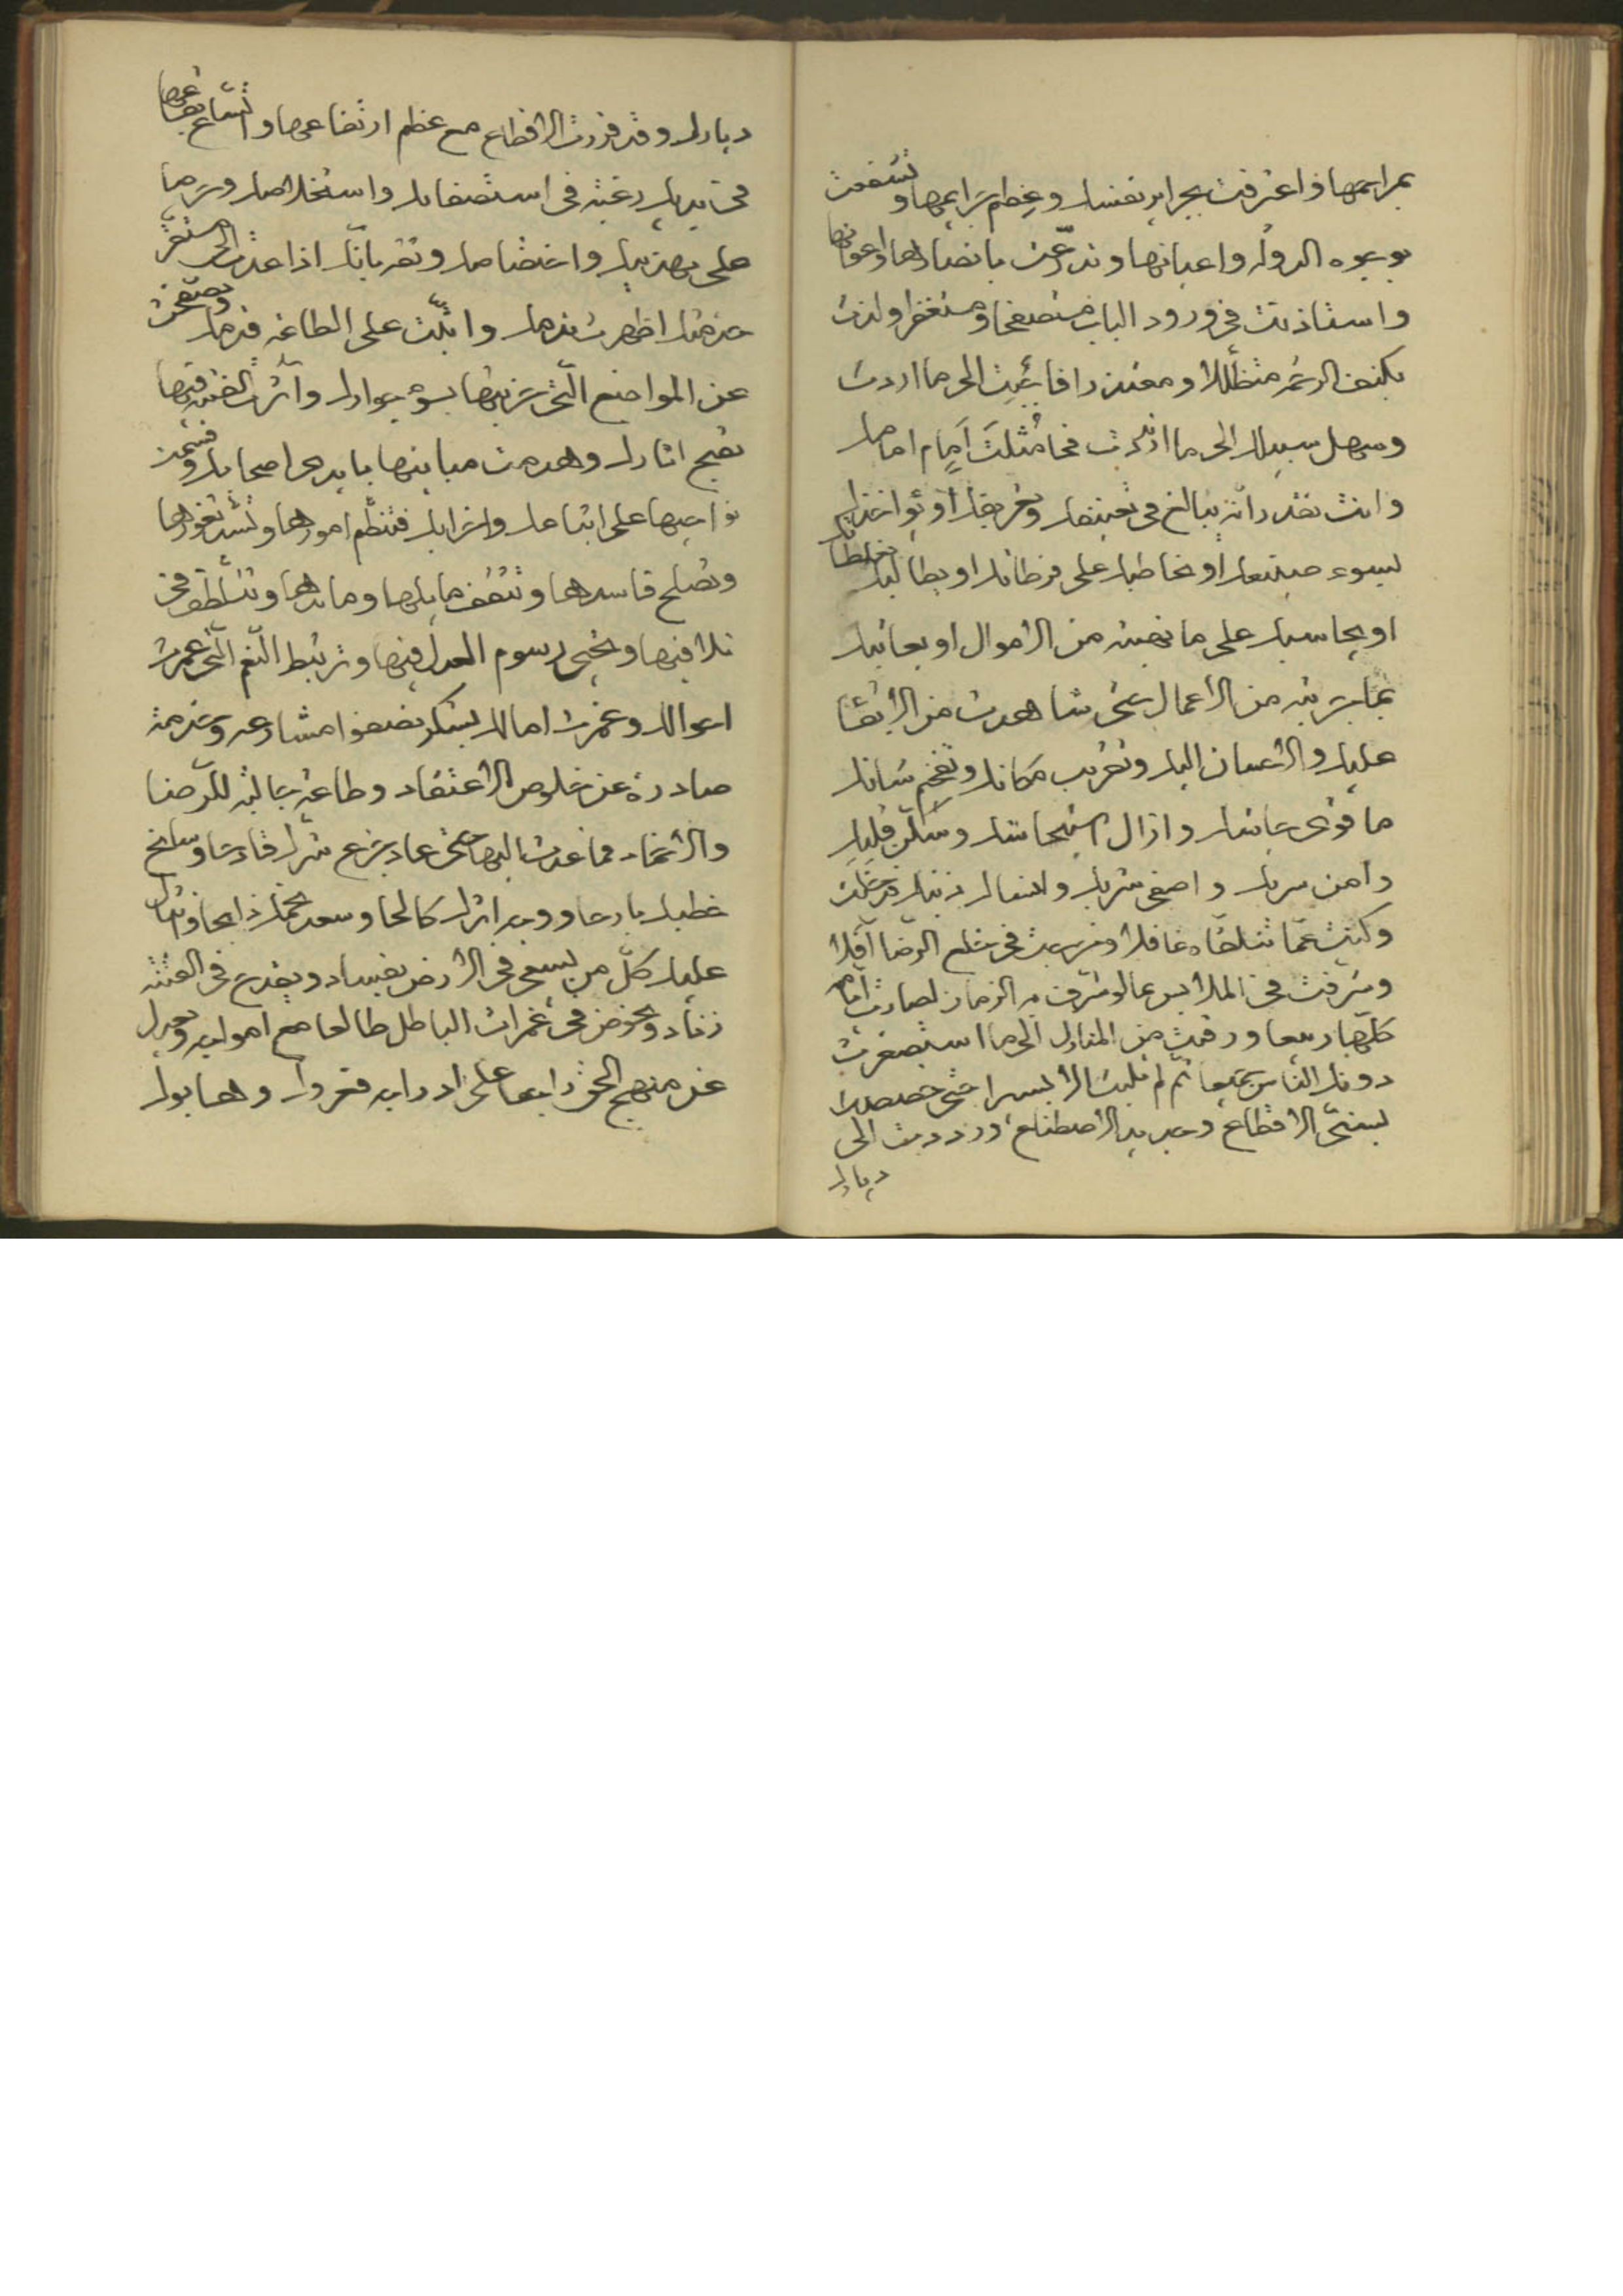 بمراسمها فاعترفت بجرايم نفسك وعظم جرايمها وتشفعت
بوجوه الدوله واعيانها وتذرعت بانصارها واعوانها
واستاذنت في ورود الباب مستصفحا ومستغفرا ولذت
بكنف الرحمه متظللا ومعتذرا فاجبت الى ما اردت
وسهل سبيلك الى ما اثرت فحا مثلت امام امامك
وانت تقدر انه يبالغ في تعنيفك وتقريعك او يواخذك
لسوء صنيعك او يخاطبك على فرطاتك او يطالبك
او يحاسبك على ما نهبته من الاموال او يعاتبك
بما خربته من الاعمال حتى شاهدت من الابقا
عليك والاحسان اليك وتقريب مكانك وتفخيم شانك
ما قوى جاشك وازال استيحاشك وسكن قلبك
وامن سربك واصفى شربك
وكنت عما تتلقاه غافلا في خلع الرضا آفلا
وشرفت في الملابس بما لو شرف به الزمان لصارت ايامه
كلها ربيعا ورقيت من المنازل الى ما استصغرت
دونك الناس جميعا ثم لم تلبث الا يسيرا حتى خصصت
بسني الاقطاع وجديد الاصطناع ورددت الى
ديارك
ديارك وقد قررت الاقطاع مع عظم ارتفاعها واتساع بقاعها
في يديك رغبة في استصفايك واستخلاصك وحرصا
على تهذيبك واختصاصك وتقر بانك اذا عدت الى مستقر
خدمتك اظهرت ندمك واثبت على الطاعه قدمك وتصفحت
عن المواضع التي خربتها بسوء جوارك وآثرت
بقبح اثارك وهدمت مبانيها بايدى اصحابك
نواحيها على اتباعك واحزابك فتنظم امورها وتسد ثغورها
وتصلح فاسدها وتثقف مايلها ومايدها وتتلطف في
تلافيها وتحيي رسوم العدل فيها وترتبط النعم التي عمرت
احوالك وغمرت امالك بشكر تصفو امشارعه وخدمة
صادرة عن خلوص الاعتقاد وطاعة جالبة للرضا
والاحماد فما عدت اليها حتى عاد جزع شرك قارحا وسانح
خطبك بارحا ووجه اثرك كالحا وسعد نجمك ذابحا وانثال
عليك كل من يسعى في الارض بفساد ويقدح في الفتنه
زناد ويخوض في غمرات الباطل طالعا مع اهوايه ويعدل
عن منهج الحق رابعا على ادرايه فغروك وهابوك